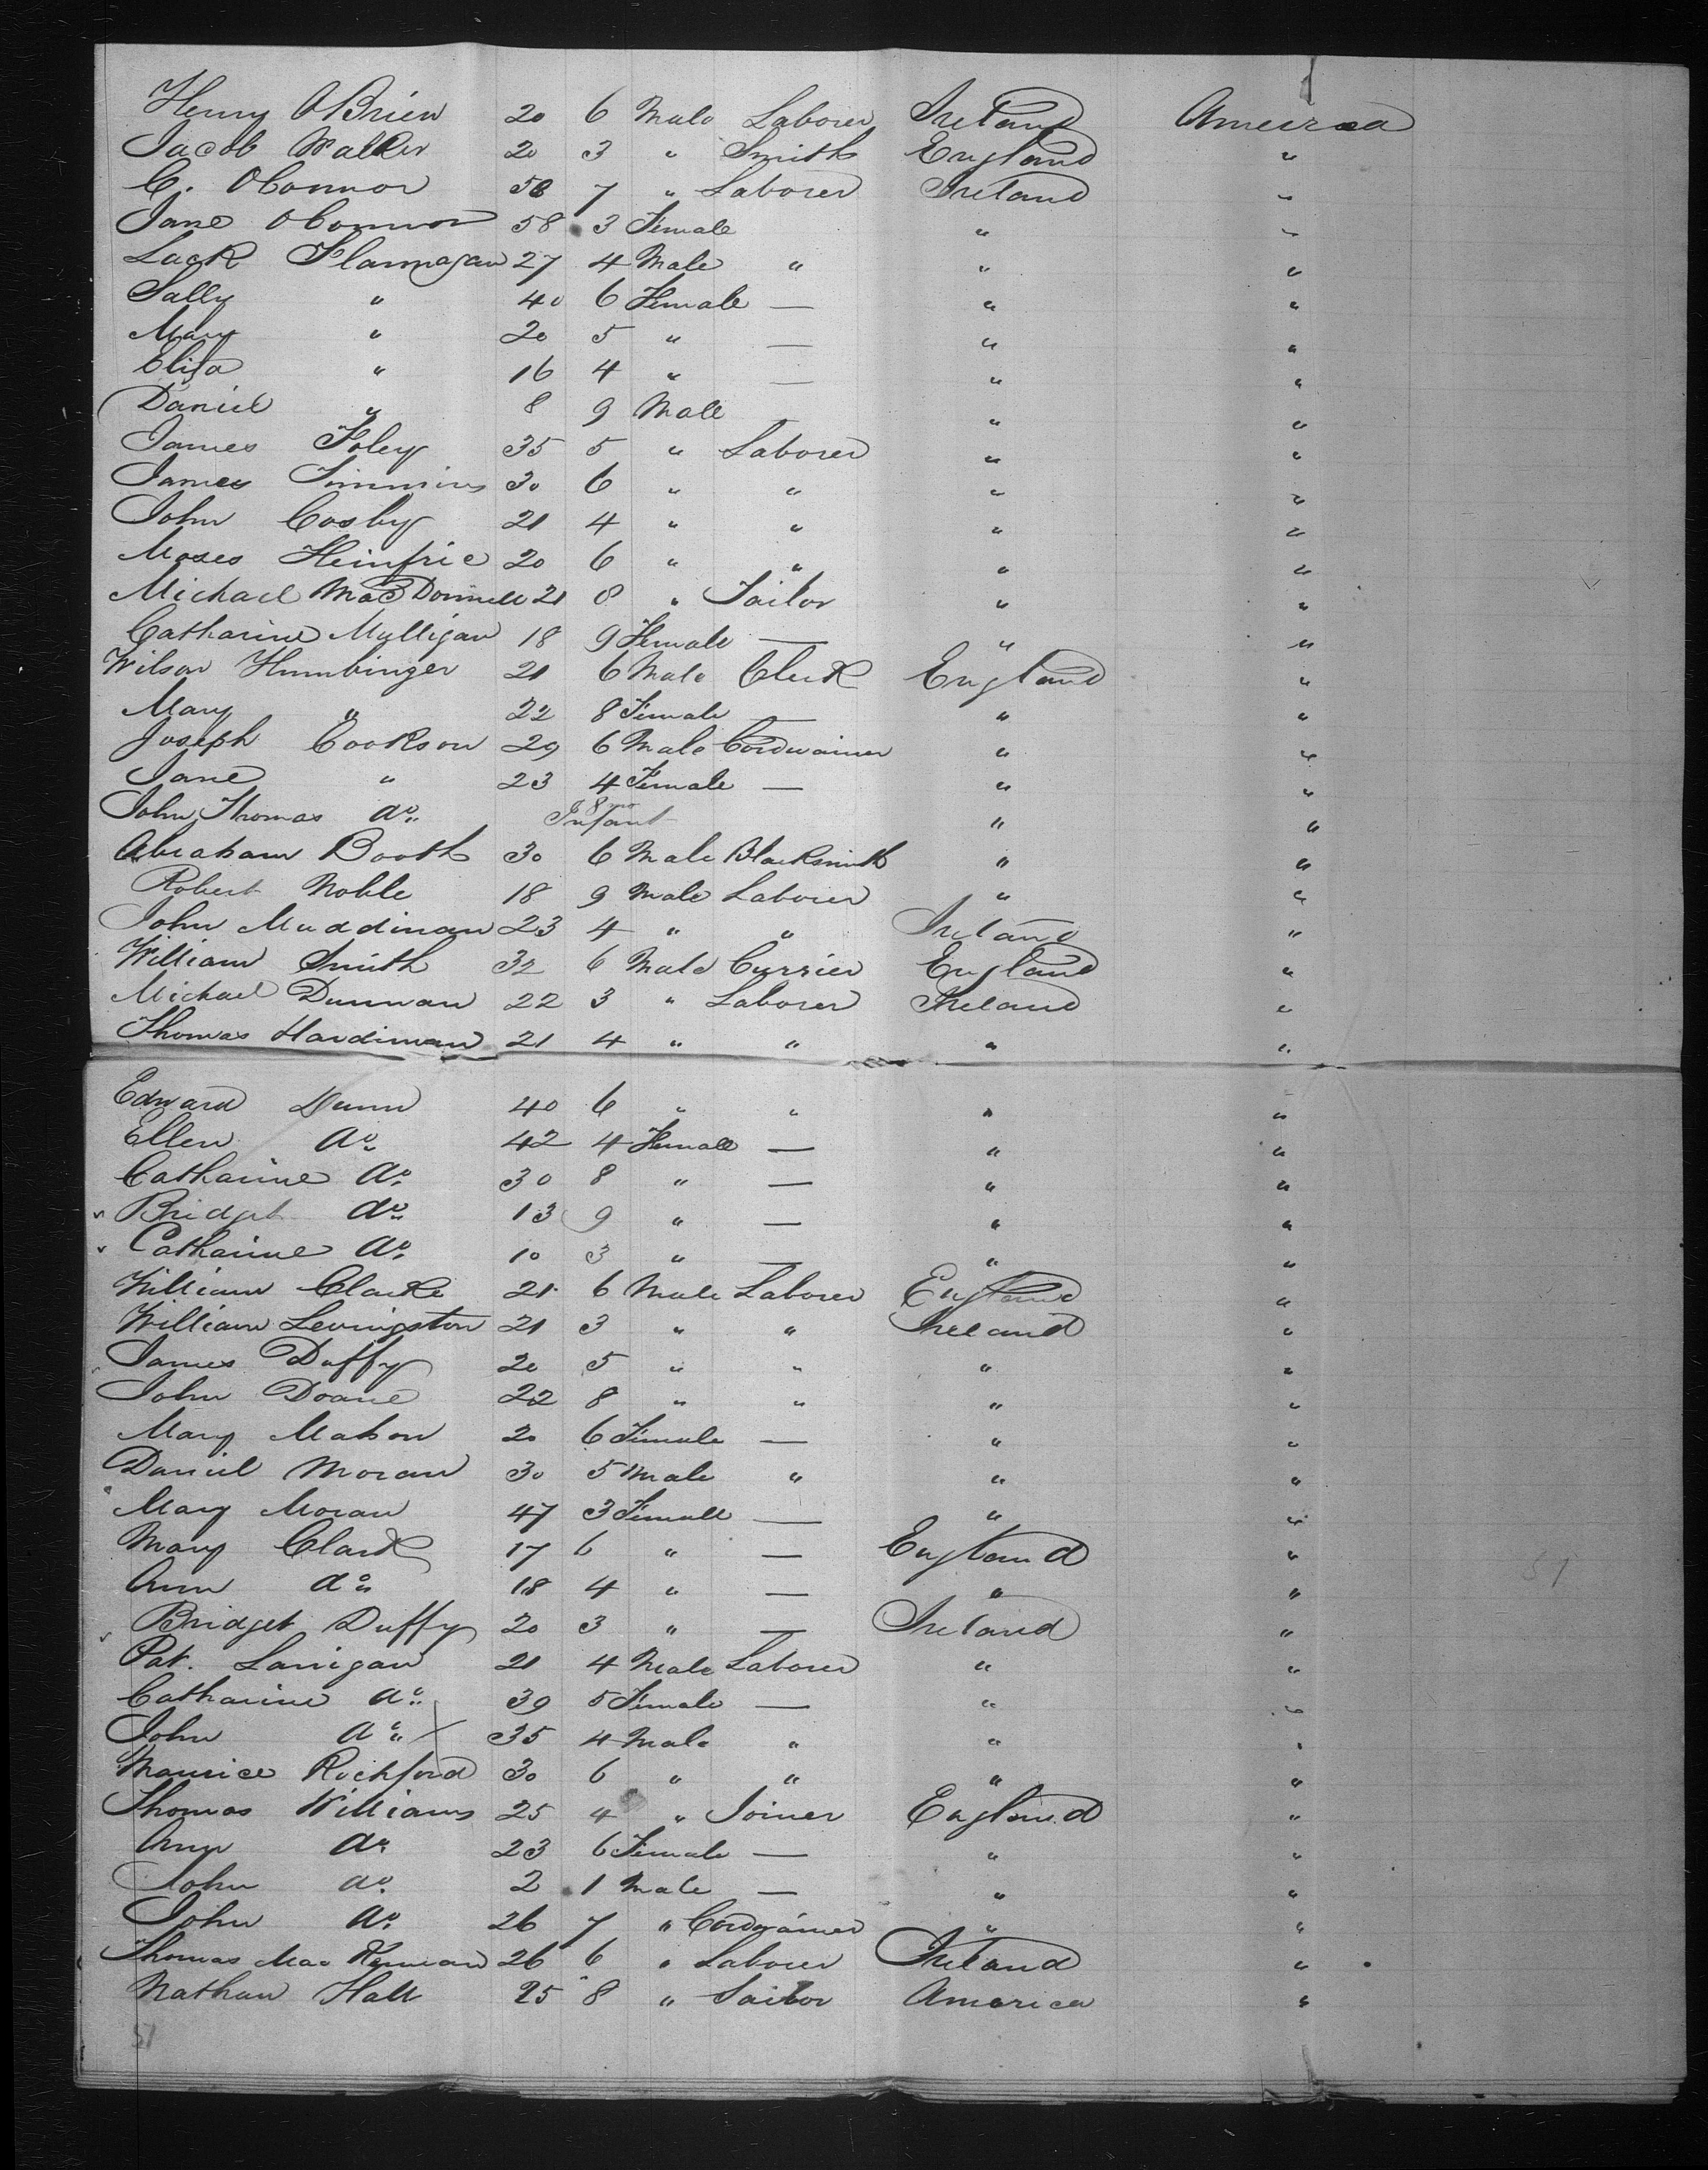 Henry OBrien 20 6 Male Laborer Ireland America
Jacob Walker 20 3 " Smith England "
C. OConnor 58 7 " Laborer Ireland "
Jane OConnor 58 3 Female " "
Lack Flannagan 27 4 Male " " "
Sally " 40 6 Female — " "
Mary " 20 5 " — " "
Eliza " 16 4 " — " "
Daniel " 8 9 Male " "
James Foley 35 5 " Laborer " "
James Timmins 30 6 " " " "
John Cosby 21 4 " " " "
Moses Heinfrie 20 6 " " " "
Michael MacDonnell 21 8 " Tailor " "
Catharine Mulligan 18 9 Female — " "
Wilson Humbinger 21 6 Male Clerk England "
Mary " 22 8 Female — " "
Joseph Cookson 29 6 Male Cordwainer " "
Jane " 23 4 Female — " "
John Thomas do. 8 mo Infant " "
Abraham Booth 30 6 Male Blacksmith " "
Robert Noble 18 9 Male Laborer " "
John Muddiman 23 4 " " Ireland "
William Smith 32 6 Male Currier England "
Michael Dunnan 22 3 " Laborer Ireland "
Thomas Hardiman 21 4 " " " "
Edward Dunn 40 6 " " " "
Ellen do. 42 4 Female — " "
Catharine do. 30 8 " — " "
Bridget do. 13 9 " — " "
Catharine do. 10 3 " — " "
William Clarke 21 6 Male Laborer England "
William Levingston 21 3 " " Ireland "
James Duffy 20 5 " " " "
John Doane 22 8 " " " "
Mary Mahon 20 6 Female — " "
Daniel Moran 30 5 Male " " "
Mary Moran 47 3 Female — " "
Mary Clark 17 6 " — England "
Ann do. 18 4 " — " "
Bridget Duffy 20 3 " — Ireland "
Pat. Lanigan 21 4 Male Laborer " "
Catharine do. 39 5 Female — " "
John do. 35 4 Male " " "
Maurice Rochford 30 6 " " " "
Thomas Williams 25 4 " Joiner England "
Ann do. 23 6 Female — " "
John do. 2 1 Male — " "
John do. 26 7 " Cordwainer " "
Thomas Mac 26 6 " Laborer Ireland "
Nathan Hall 25 8 " Sailor America "
51
51